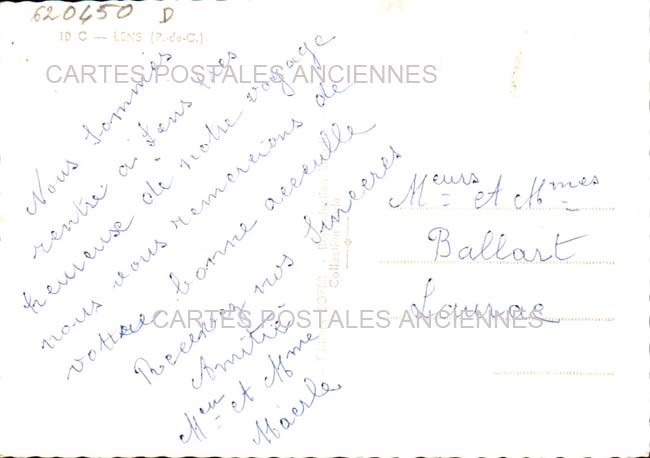 620450 D
10 C — LENS (P.-de-C.)
CARTES POSTALES ANCIENNES
Nous sommes
rentré à Lens très
heureuse de notre voyage
nous vous remercions de
vottre bonne acceuille
Reçevez nos Sincères
Amitiés
Meur et Mme
Macrle
Meurs et Mmes
Ballart
Laurac
CARTES POSTALES ANCIENNES
Collection